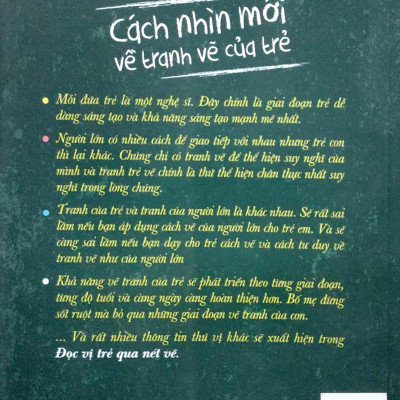 Cách nhìn mới
về tranh vẽ của trẻ
Mỗi đứa trẻ là một nghệ sĩ. Đây chính là giai đoạn trẻ dễ
dàng sáng tạo và khả năng sáng tạo mạnh mẽ nhất.
Người lớn có nhiều cách để giao tiếp với nhau nhưng trẻ con
thì lại khác. Chúng chỉ có tranh vẽ để thể hiện suy nghĩ của
mình và tranh trẻ vẽ chính là thứ thể hiện chân thực nhất suy
nghĩ trong lòng chúng.
Tranh của trẻ và tranh của người lớn là khác nhau. Sẽ rất sai
lầm nếu bạn áp dụng cách vẽ của người lớn cho trẻ em. Và sẽ
càng sai lầm nếu bạn dạy cho trẻ cách vẽ và cách tư duy vẽ
tranh vẽ như của người lớn
Khả năng vẽ tranh của trẻ sẽ phát triển theo từng giai đoạn,
từng độ tuổi và càng ngày càng hoàn thiện hơn. Bố mẹ đừng
sốt ruột mà bỏ qua những giai đoạn vẽ tranh của con.
... Và rất nhiều thông tin thú vị khác sẽ xuất hiện trong
Đọc vị trẻ qua nét vẽ.